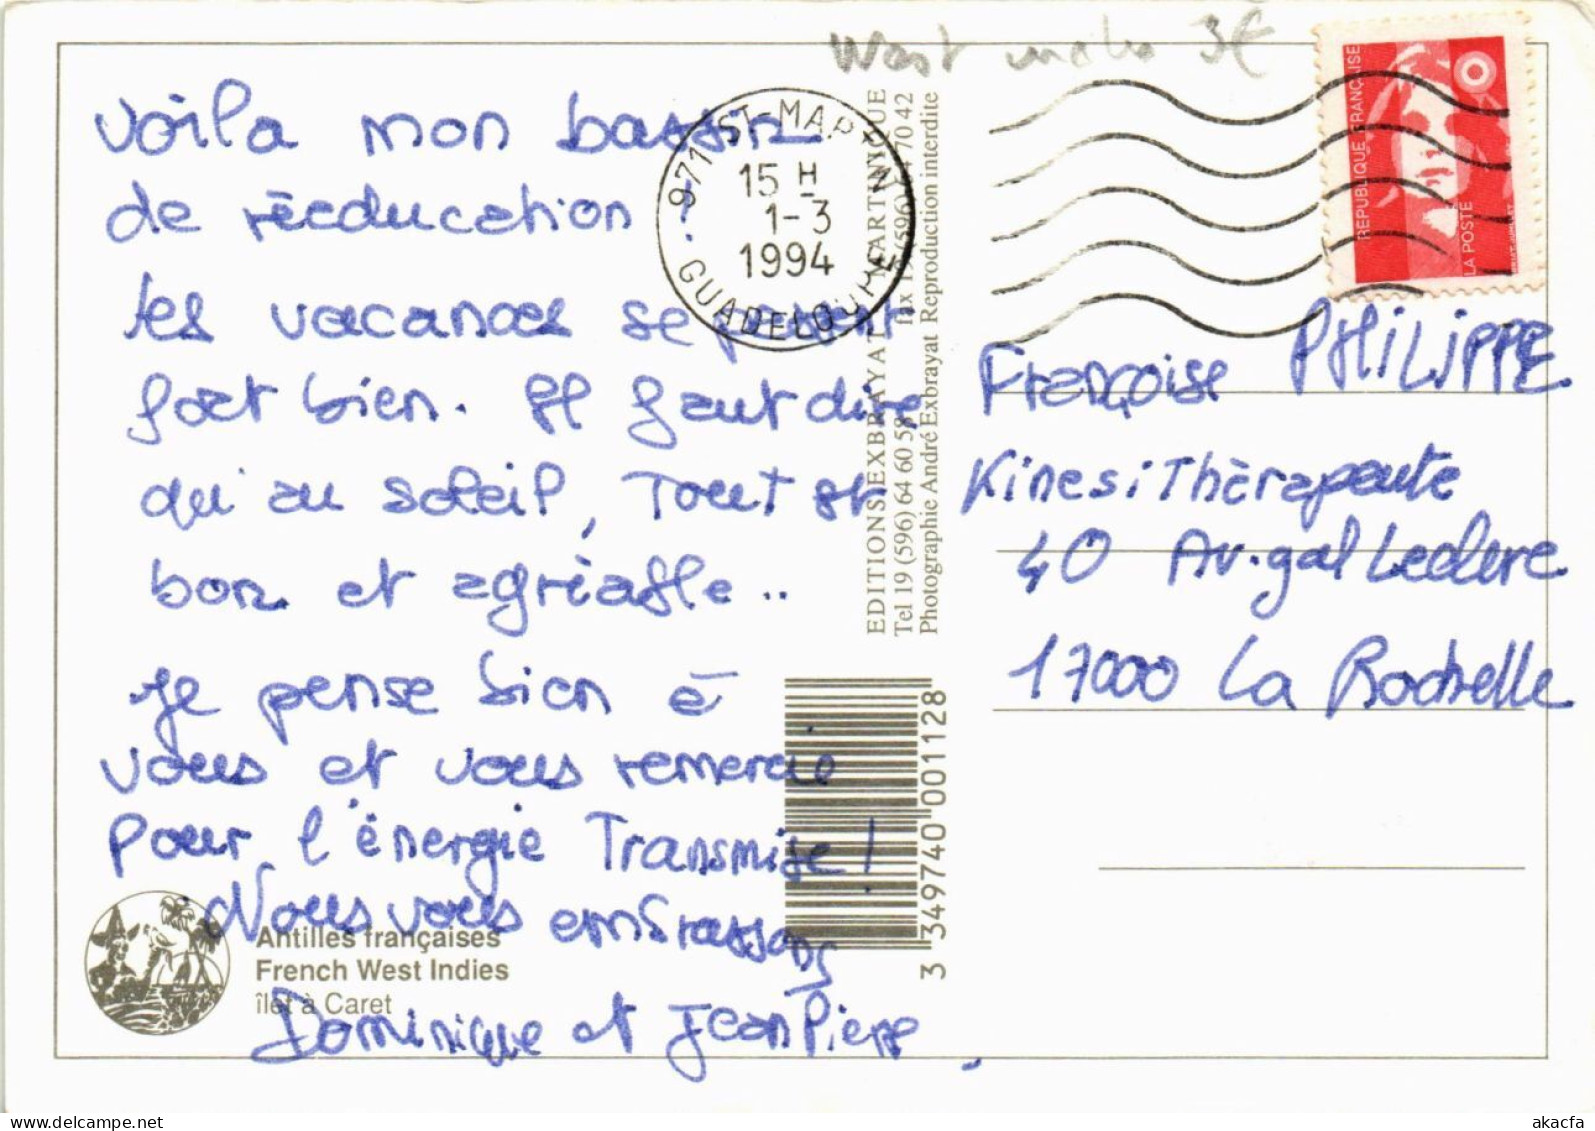 West indies 3€
Voila mon bassin
de rééducation !
les vacances se passent
fort bien. Il faut dire
qu'au soleil, Tout est
bon et agréable..
Je pense bien à
vous et vous remercie
pour l'énergie Transmise !
Nous vous embrassons
Dominique et Jean Pierre.
971 ST-MARTIN
15 H
1-3
1994
GUADELOUPE
RÉPUBLIQUE FRANÇAISE
LA POSTE
EDITIONS EXBRAYAT MARTINIQUE
Tel 19 (596) 64 60 58 fax 19 (596) 64 70 42
Photographie André Exbrayat Reproduction interdite
Françoise PHILIPPE
KinesiThèrapeute
40 Av. gal Leclerc
17000 La Rochelle
3 349740 001128
Antilles françaises
French West Indies
îlet à Caret
delcampe.net
akacfa